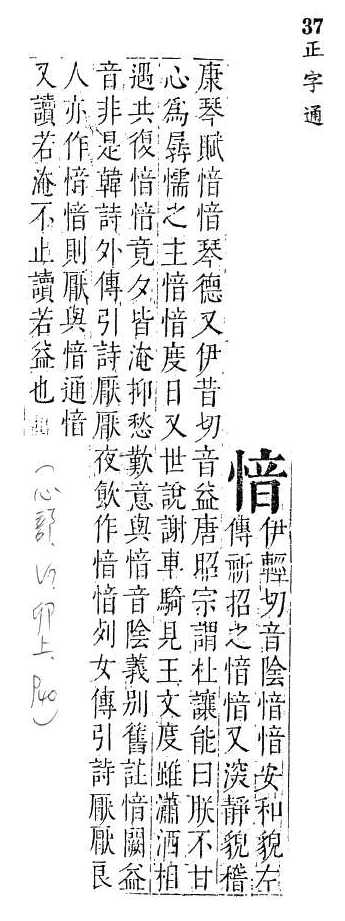 37 正字通
愔
伊輕切音陰愔愔安和貌左
傳祈招之愔愔又深靜貌嵇
康琴賦愔愔琴德又伊昔切音益唐昭宗謂杜讓能曰朕不甘
心為孱懦之主愔愔度日又世說謝車騎見王文度雖瀟洒相
遇共復愔愔竟夕皆淹抑愁歎意與愔音陰義別舊註愔闕益
音非是韓詩外傳引詩厭厭夜飲作愔愔列女傳引詩厭厭良
人亦作愔愔則厭與愔通愔
又讀若淹不止讀若益也
(心部 卯上 P40)